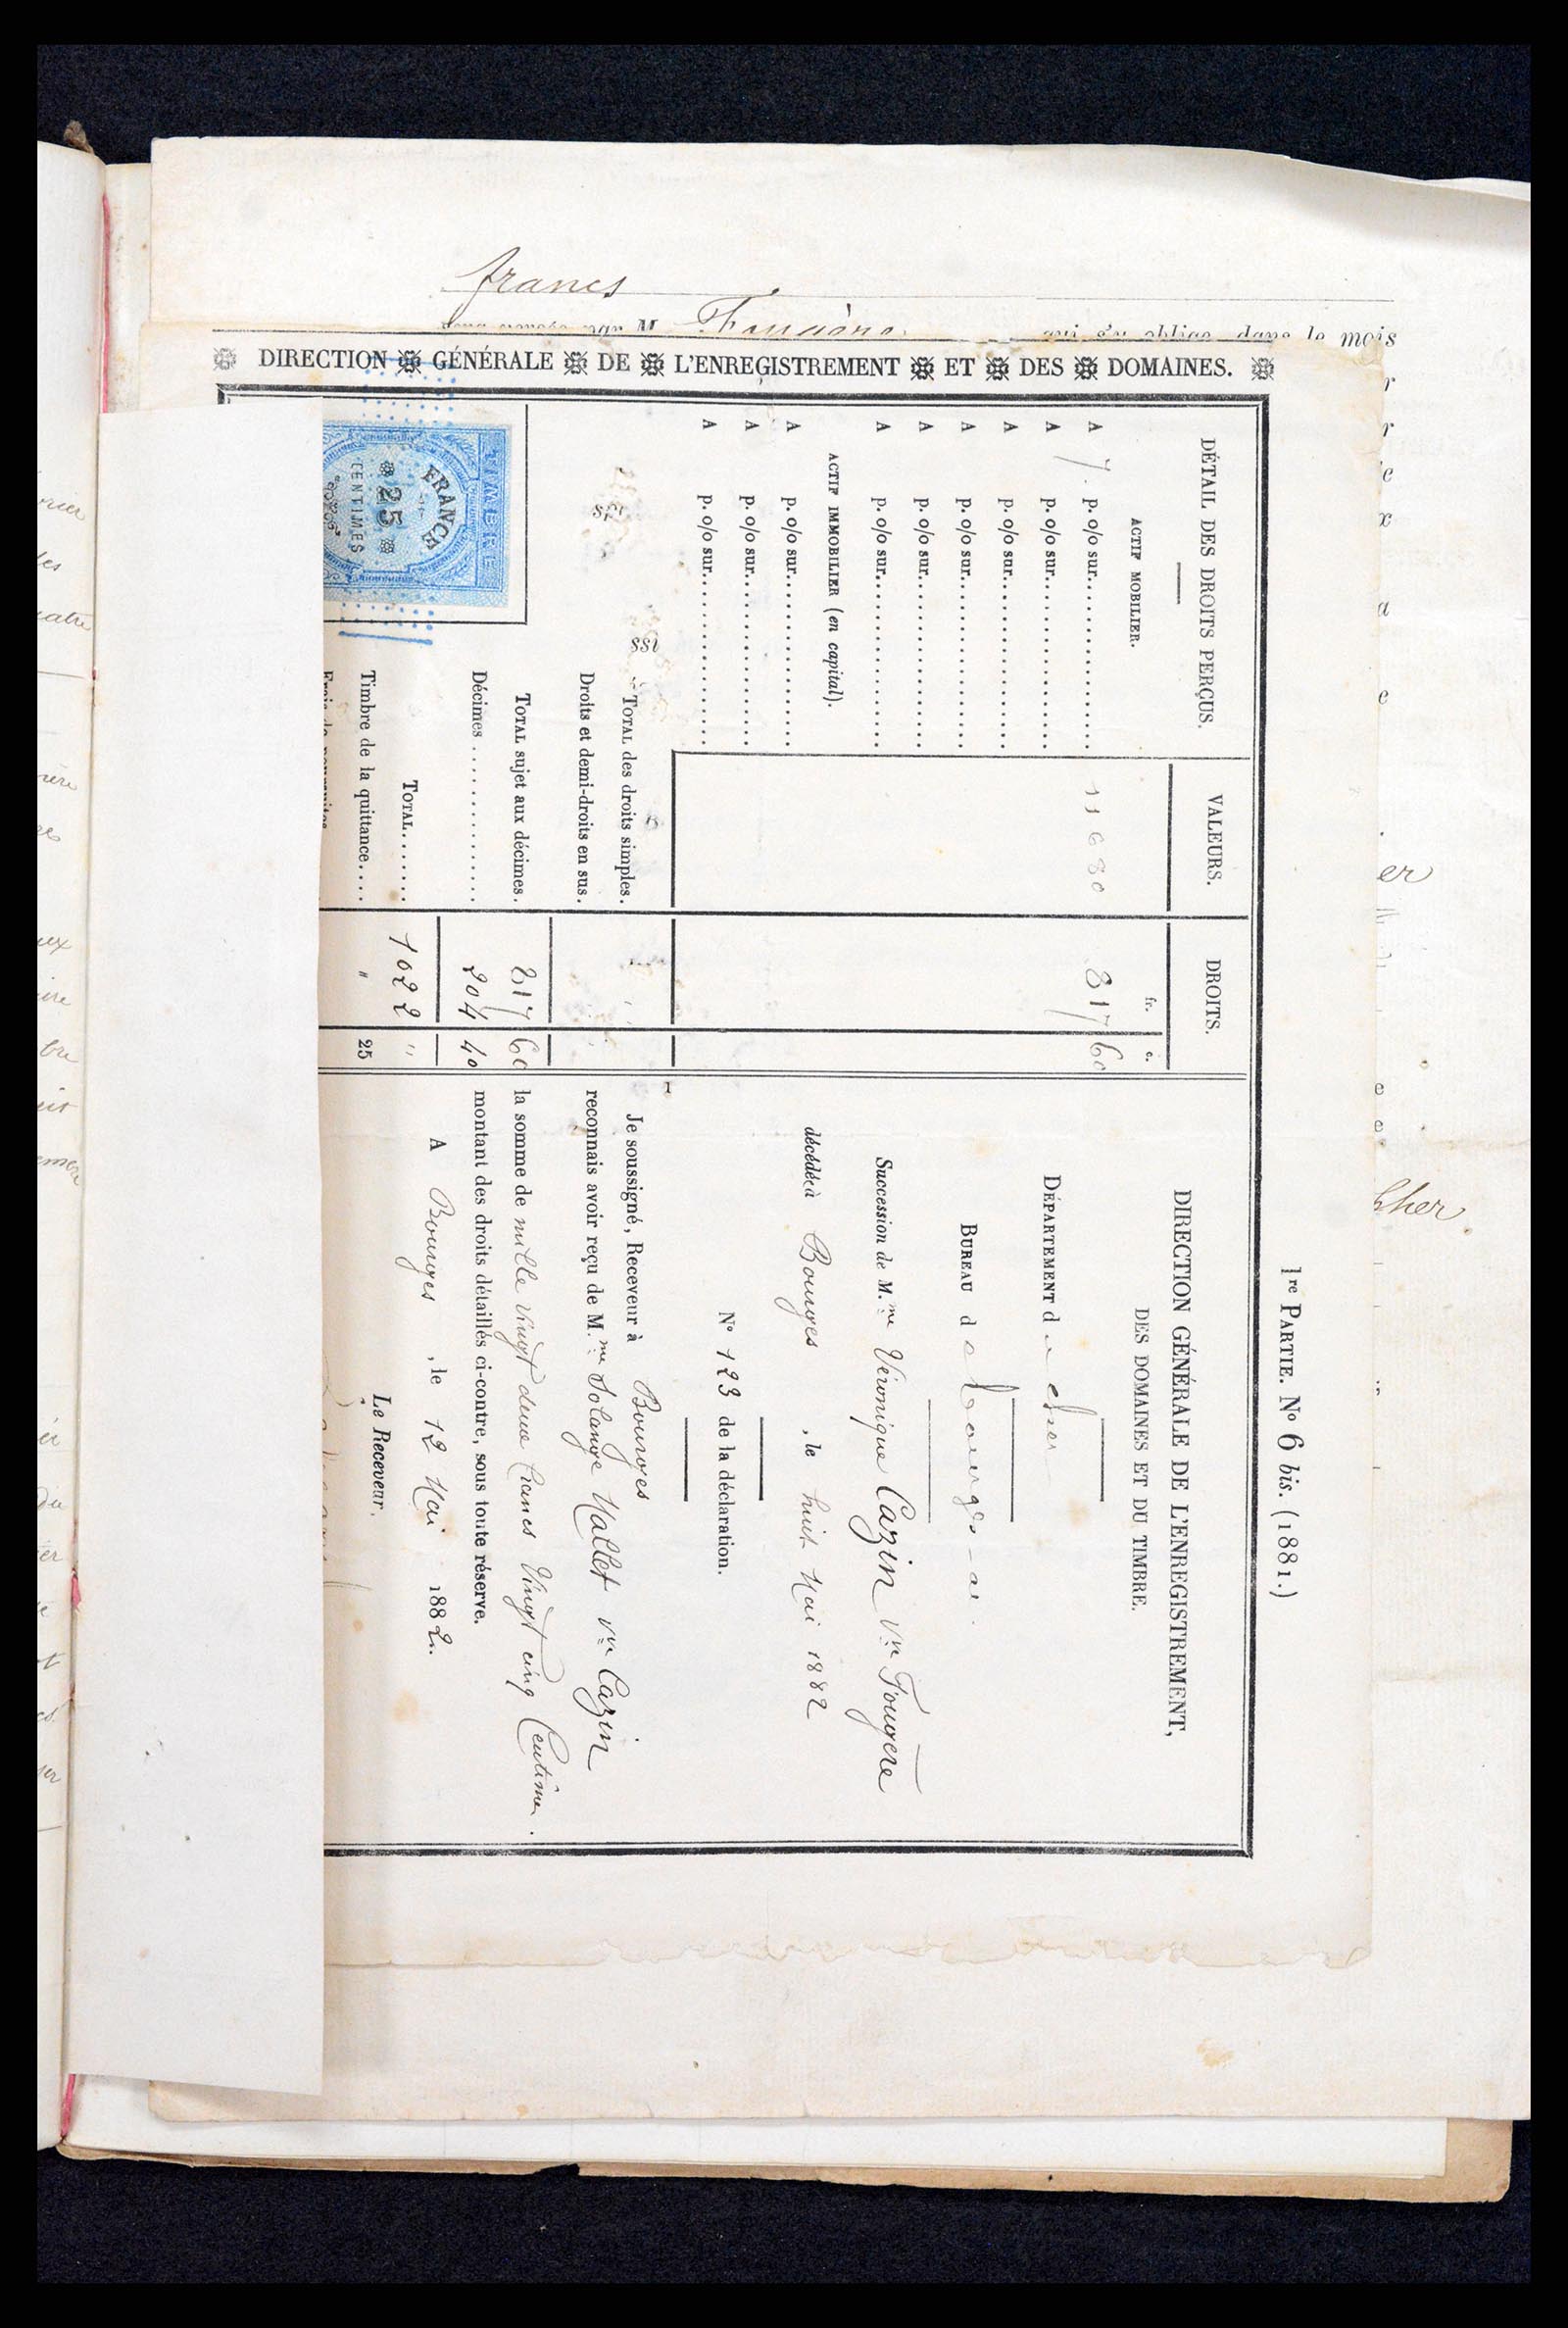 francs
M. Fougère qui s'y oblige, dans le mois
DIRECTION GÉNÉRALE DE L'ENREGISTREMENT ET DES DOMAINES.
1re PARTIE. N° 6 bis. (1881.)
DÉTAIL DES DROITS PERÇUS.
VALEURS.
DROITS.
fr. c.
ACTIF MOBILIER.
A 7 p. o/o sur 11680 817 60
A p. o/o sur
A p. o/o sur
A p. o/o sur
A p. o/o sur
A p. o/o sur
ACTIF IMMOBILIER (en capital).
A p. o/o sur
A p. o/o sur
A p. o/o sur
TOTAL des droits simples.
Droits et demi-droits en sus.
TOTAL sujet aux décimes. 817 60
Décimes 204 40
TOTAL 1022 "
Timbre de la quittance " 25
TIMBRE
FRANCE
25
CENTIMES
DIRECTION GÉNÉRALE DE L'ENREGISTREMENT,
DES DOMAINES ET DU TIMBRE.
DÉPARTEMENT du Cher
BUREAU de Bourges
Succession de M.me Véronique Cazin Vve Fougère
décédé à Bourges, le huit Mai 1882
N° 123 de la déclaration.
Je soussigné, Receveur à Bourges
reconnais avoir reçu de M.me Solange Mallet Vve Cazin
la somme de mille vingt deux francs vingt cinq Centimes.
montant des droits détaillés ci-contre, sous toute réserve.
A Bourges, le 12 Mai 1882.
Le Receveur,